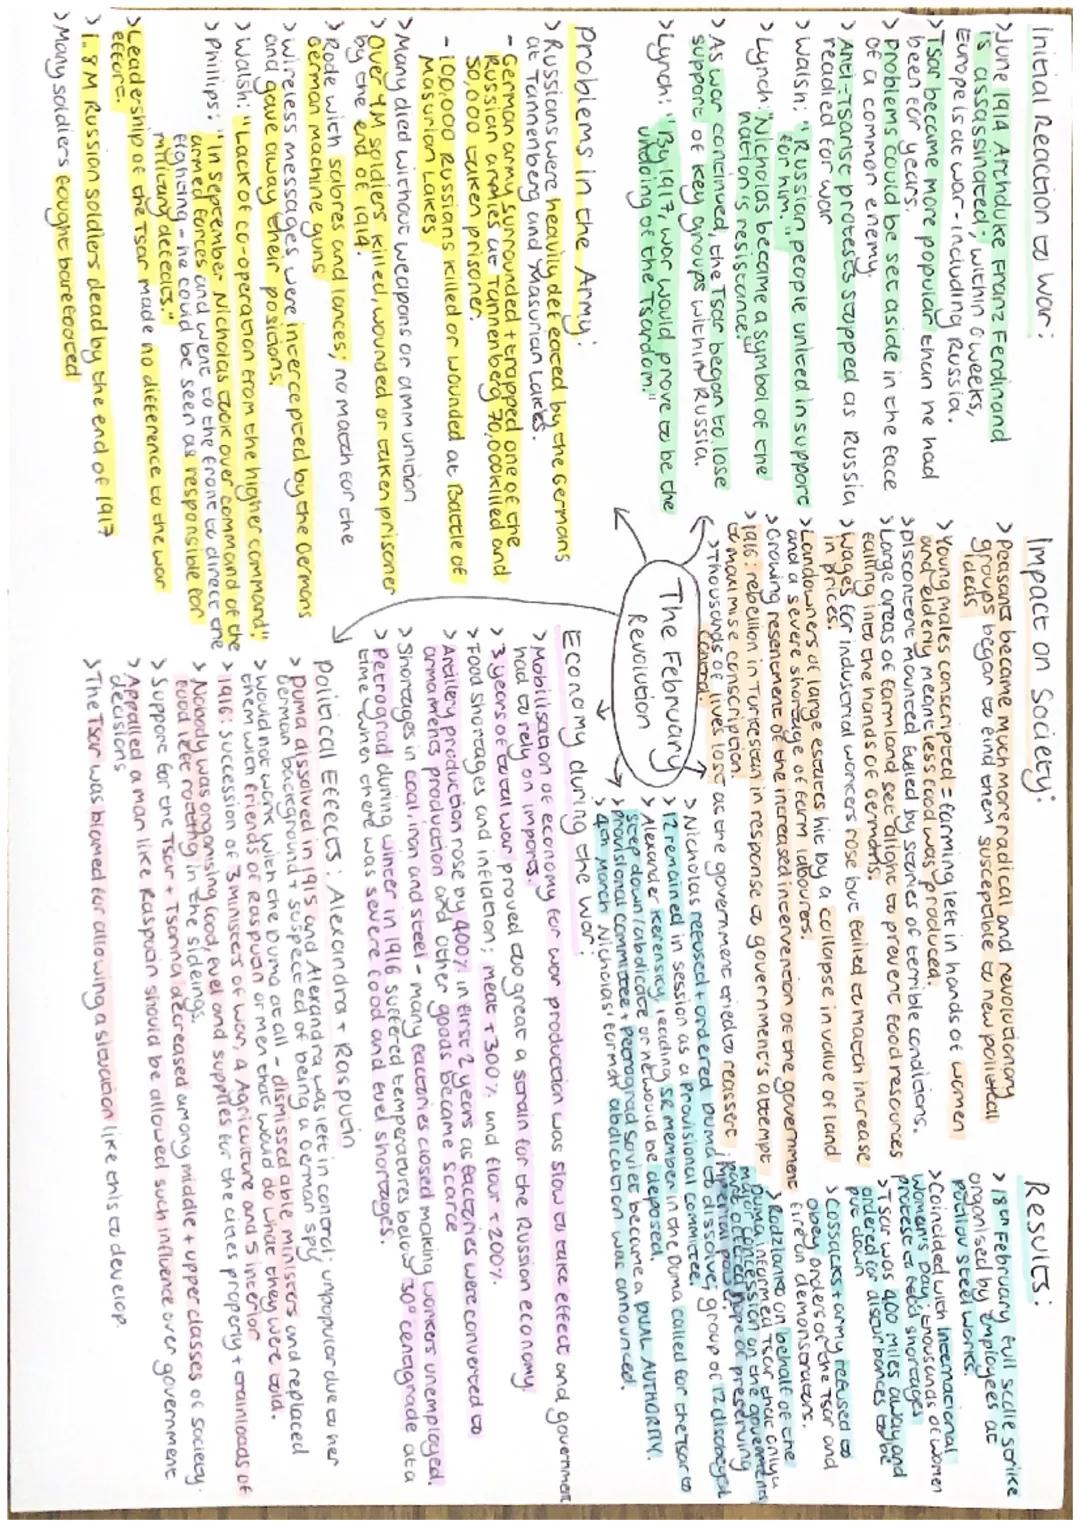 The February
Revolution
Initial Reaction to war:
> June 1914 Archduke Franz Ferdinand
is assassinated; within 6 weeks,
Europe is at war - including Russia.
> Tsar became more popular than he had
been for years.
> Problems could be set aside in the face
of a common enemy.
> Anti-Tsarist protests stopped as Russia
readied for war
> Walsh: "Russian people united in support
for him."
> Lynch: "Nicholas became a symbol of the
nation's resistance"
> As war continued, the Tsar began to lose
support of key groups within Russia.
> Lynch: "By 1917, war would prove to be the
undoing of the Tsardom."
Problems in the Army:
> Russians were heavily defeated by the Germans
at Tannenberg and Masurian Lakes.
- German army surrounded + trapped one of the
Russian armies at Tannenberg 70,000 killed and
50,000 taken prisoner.
- 100,000 Russians killed or wounded at Battle of
Masurian Lakes
> Many died without weapons or ammunition
> Over 4M soldiers killed, wounded or taken prisoner
by the end of 1914.
> Rode with sabres and lances; no match for the
German machine guns
> Wireless messages were intercepted by the Germans
and gave away their positions.
> Walsh: "Lack of co-operation from the higher command"
> Phillips: "In September Nicholas took over command of the
armed forces and went to the front to direct the
fighting - he could be seen as responsible for
military defeats."
> Leadership of the Tsar made no difference to the war
effort.
> 1.8M Russian soldiers dead by the end of 1917
> Many soldiers fought barefooted
Impact on Society:
> Peasants became much more radical and revolutionary
groups began to find them susceptible to new political
ideas
> Young males conscripted = farming left in hands of women
and elderly meant less food was produced.
> Discontent mounted fueled by stories of terrible conditions.
> Large areas of farmland set alight to prevent food resources
falling into the hands of Germans.
> Wages for industrial workers rose but failed to match increase
in prices.
> Landowners of large estates hit by a collapse in value of land
and a severe shortage of farm labourers.
> Growing resentment of the increased intervention of the government
> 1916: rebellion in Turkestan in response to government's attempt
to maximise conscription.
> Thousands of lives lost as the government tried to reassert
control.
Results:
> 18th February full scale strike
organised by employees at
Putilov steel works.
> Coincided with International
Women's Day; thousands of women
protest to food shortages
> Tsar was 400 miles away and
ordered for disturbances to be
put down
> Cossacks + army refused to
obey orders of the Tsar and
fire on demonstrators.
> Rodzianko on behalf of the
Duma informed Tsar that only a
major concession on the governments
part offered hope of preserving
imperial power.
> Nicholas refused + ordered Duma to dissolve; group of 12 disobeyed
> 12 remained in session as a provisional committee.
> Alexander Kerensky, leading SR member in the Duma called for the Tsar to
step down/abdicate or he would be deposed.
> Provisional committee + Petrograd Soviet became a DUAL AUTHORITY.
> 4th March Nicholas' formal abdication was announced.
Economy during the war:
> Mobilisation of economy for war production was slow to take effect and government
had to rely on imports.
> 3 years of total war proved too great a strain for the Russian economy.
> Food shortages and inflation; meat ↑300% and flour ↑200%.
> Artillery production rose by 400% in first 2 years as factories were converted to
armaments production and other goods became scarce
> Shortages in coal, iron and steel - many factories closed making workers unemployed.
> Petrograd during winter in 1916 suffered temperatures below 30° centigrade at a
time when there was severe food and fuel shortages.
Political Effects: Alexandra + Rasputin
> Duma dissolved in 1915 and Alexandra was left in control; unpopular due to her
German background + suspected of being a German spy
> Would not work with the Duma at all - dismissed able ministers and replaced
them with friends of Rasputin or men that would do what they were told.
> 1916: succession of 3 ministers of war, 4 Agriculture and 5 interior
> Nobody was organising food, fuel and supplies for the cities properly + trainloads of
food left rotting in the sidings.
> Support for the Tsar + Tsarina decreased among middle + upper classes of society.
> Appalled a man like Rasputin should be allowed such influence over government
decisions
> The Tsar was blamed for allowing a situation like this to develop.